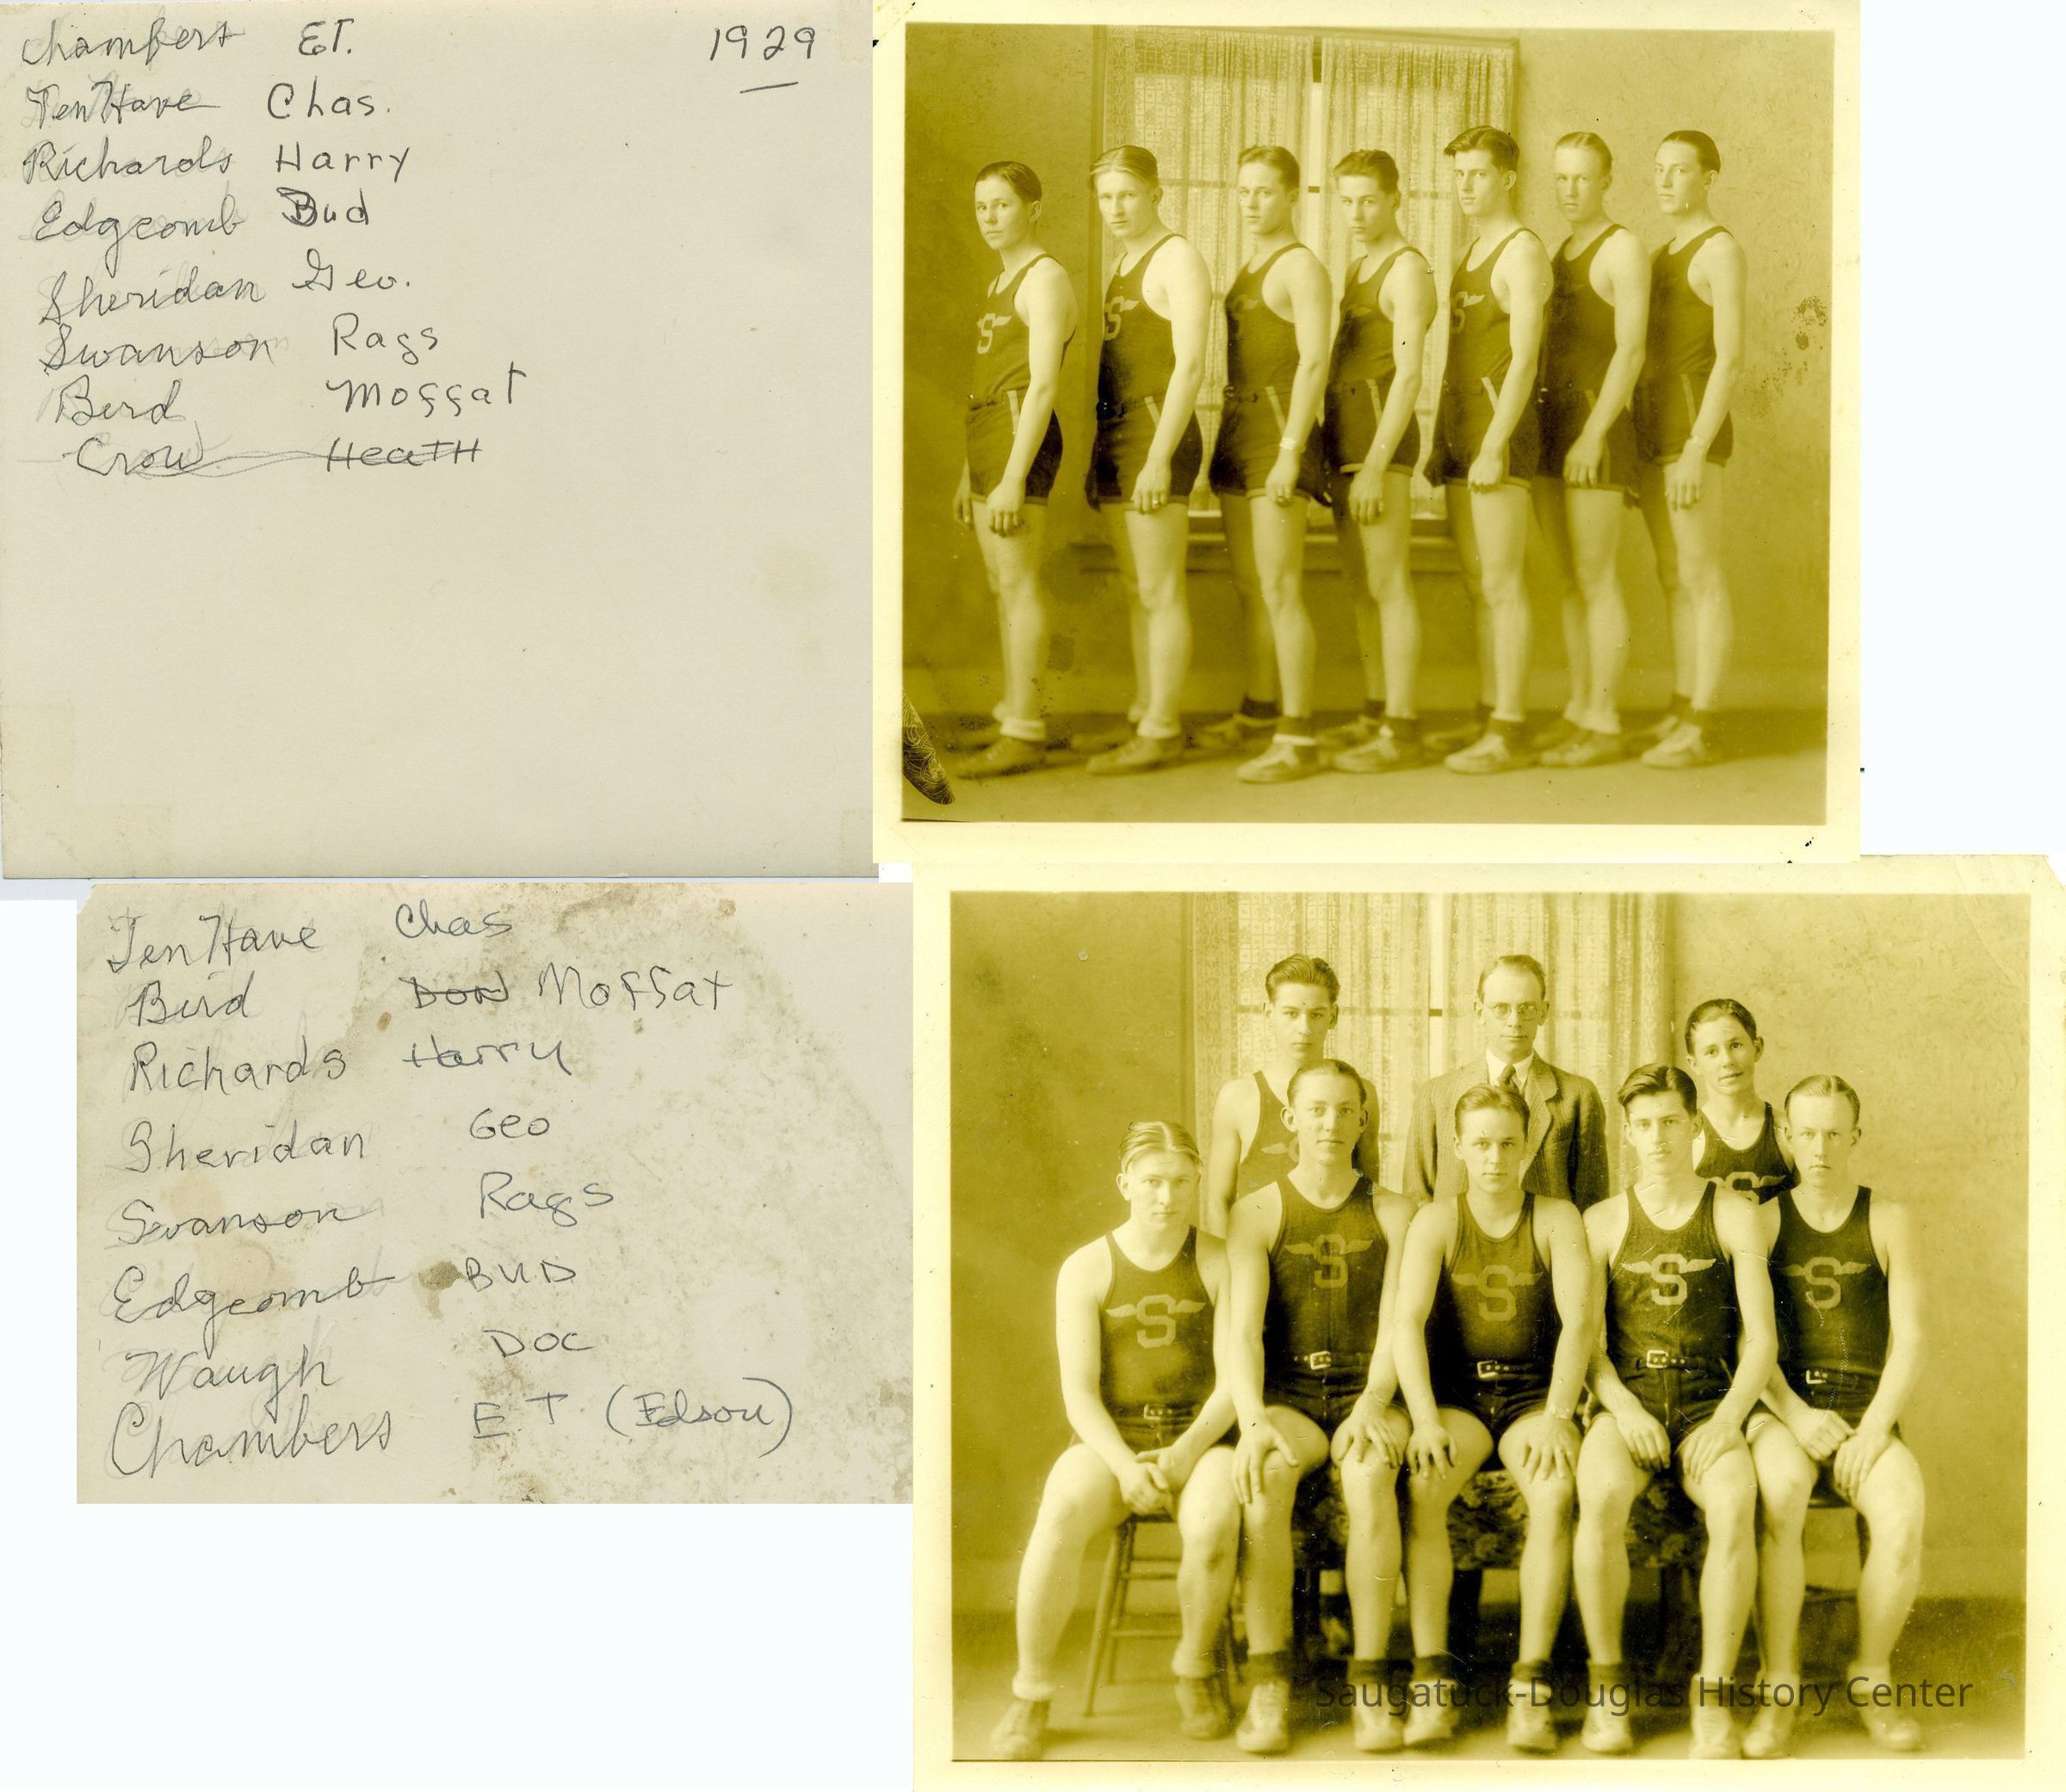 Chambers ET. 1929
TenHave Chas.
Richards Harry
Edgcomb Bud
Sheridan Geo.
Swanson Rags
Bird Moffat
Crow Heath
TenHave Chas
Bird Don Moffat
Richards Harry
Sheridan Geo
Swanson Rags
Edgcomb BUD
Waugh DOC
Chambers ET (Edson)
S
S
S
S
S
S
S
S
S
S
S
Saugatuck-Douglas History Center